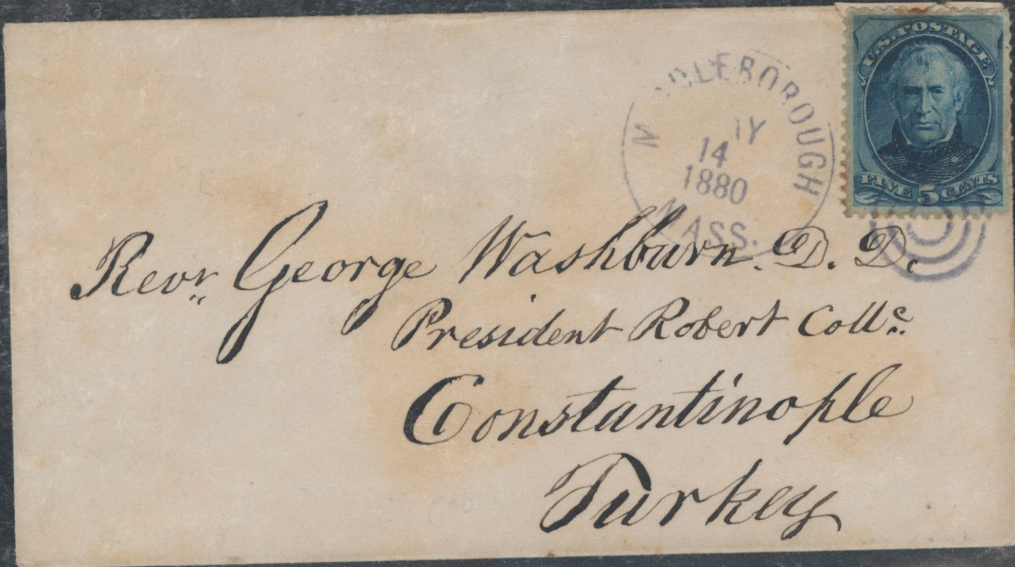 U.S. POSTAGE
FIVE 5 CENTS
14
1880
MASS.
Revr George Washburn. D. D.
President Robert Colle.
Constantinople
Turkey